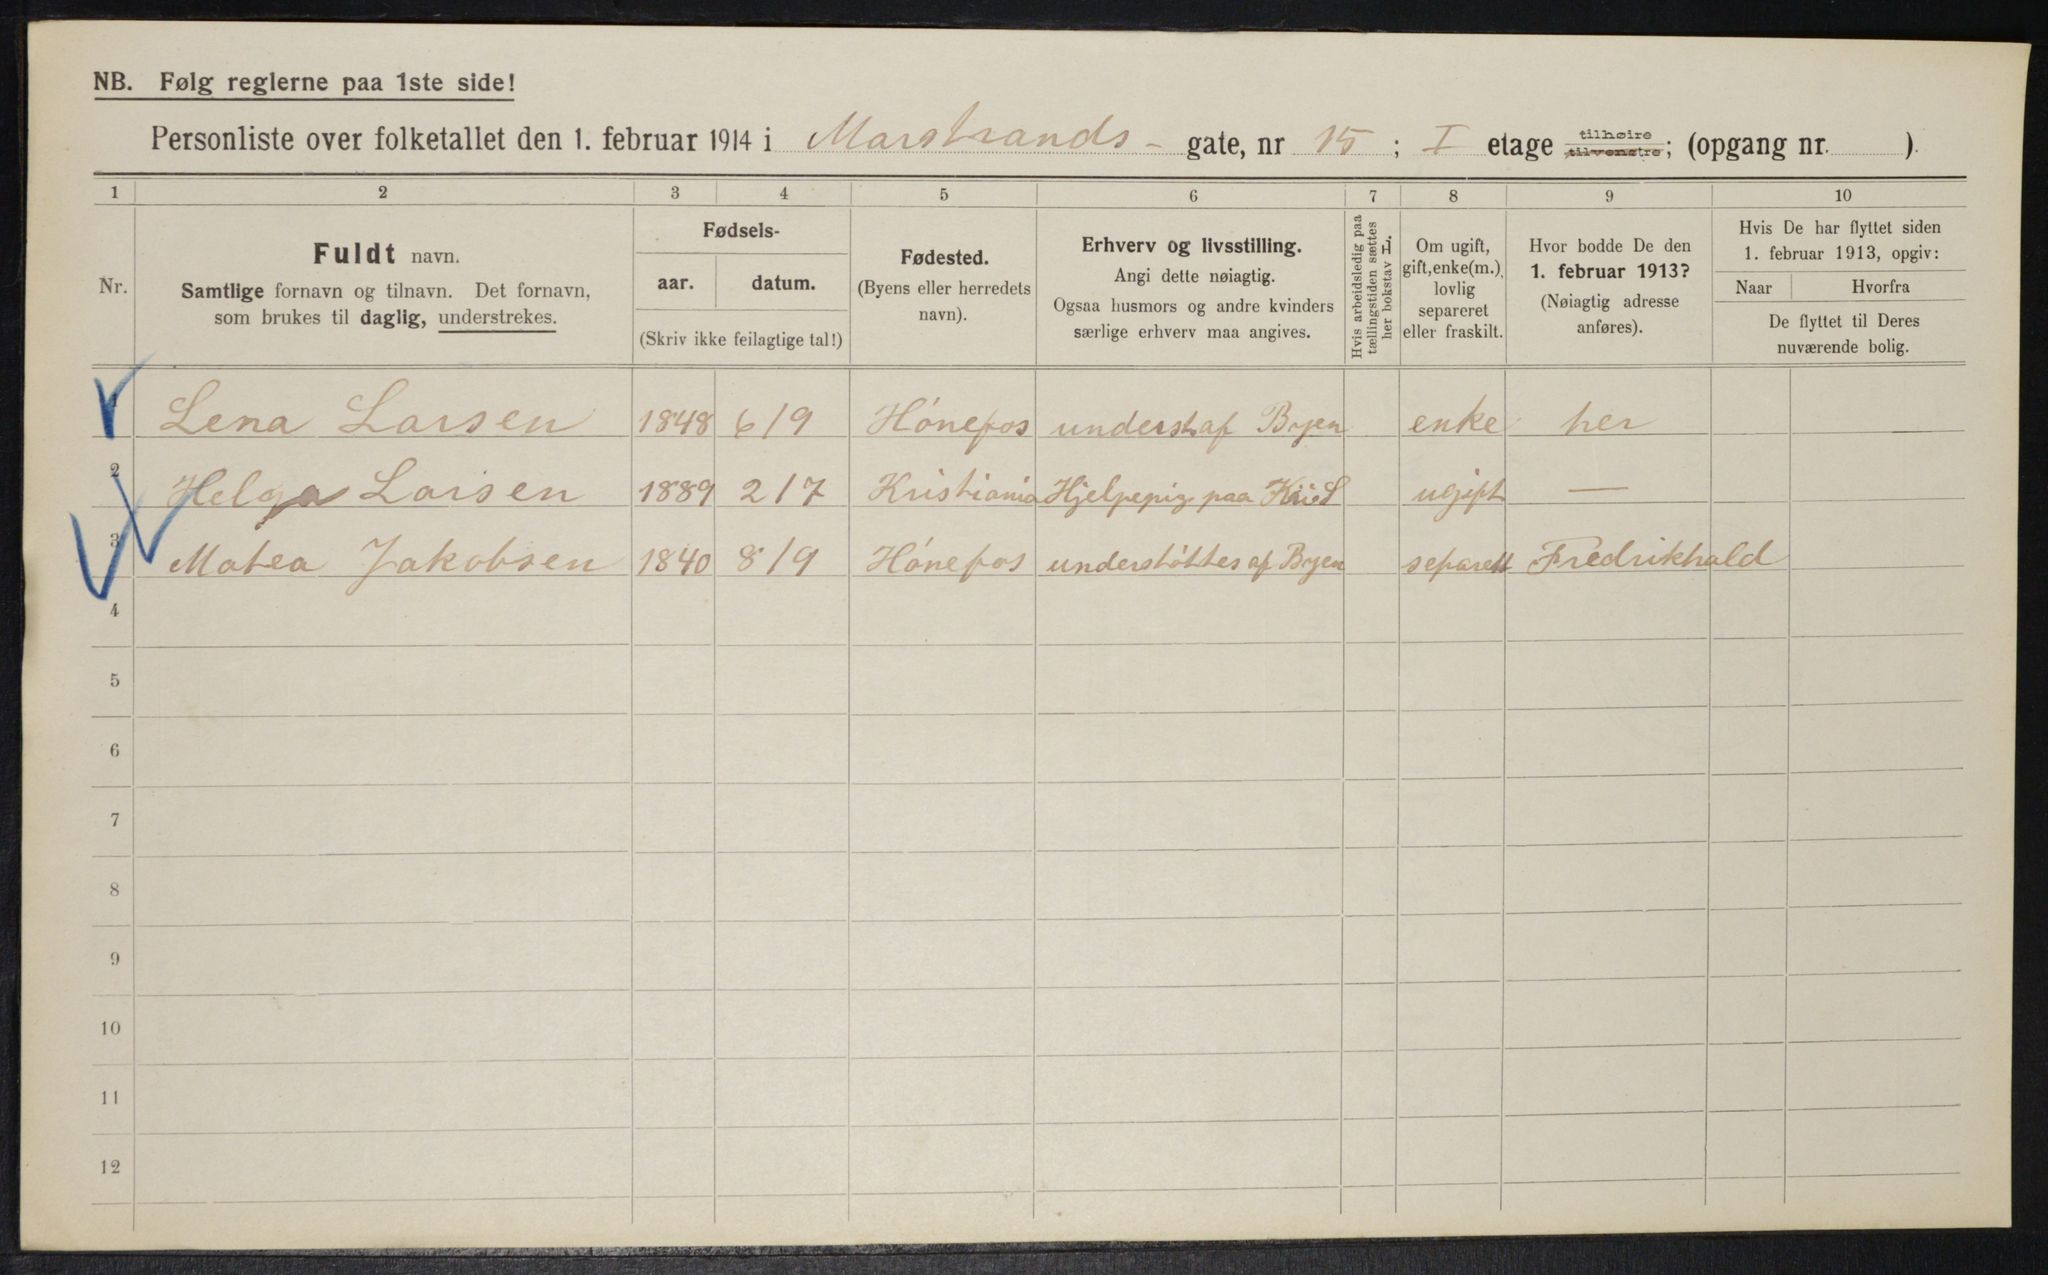 NB. Følg reglerne paa 1ste side!
Personliste over folketallet den 1. februar 1914 i Marstrands - gate, nr 15; I etage tilhøire tilvenstre; (opgang nr. ).
1 2 3 4 5 6 7 8 9 10
Nr.
Fuldt navn.
Samtlige fornavn og tilnavn. Det fornavn,
som brukes til daglig, understrekes.
Fødsels-
aar. datum.
(Skriv ikke feilagtige tal!)
Fødested.
(Byens eller herredets
navn).
Erhverv og livsstilling.
Angi dette nøiagtig.
Ogsaa husmors og andre kvinders
særlige erhverv maa angives.
Hvis arbeidsledig paa
tællingstiden sættes
her bokstav L.
Om ugift,
gift, enke(m.),
lovlig
separeret
eller fraskilt.
Hvor bodde De den
1. februar 1913?
(Nøiagtig adresse
anføres).
Hvis De har flyttet siden
1. februar 1913, opgiv:
Naar Hvorfra
De flyttet til Deres
nuværende bolig.
1 Lena Larsen 1848 6/9 Hónefos underst af Byen enke her
2 Helga Larsen 1889 2/7 Kristiania Hjelpepig paa ugift —
3 Matea Jakobsen 1840 8/9 Hónefos understóttes af Byen separett Fredrikhald
4
5
6
7
8
9
10
11
12